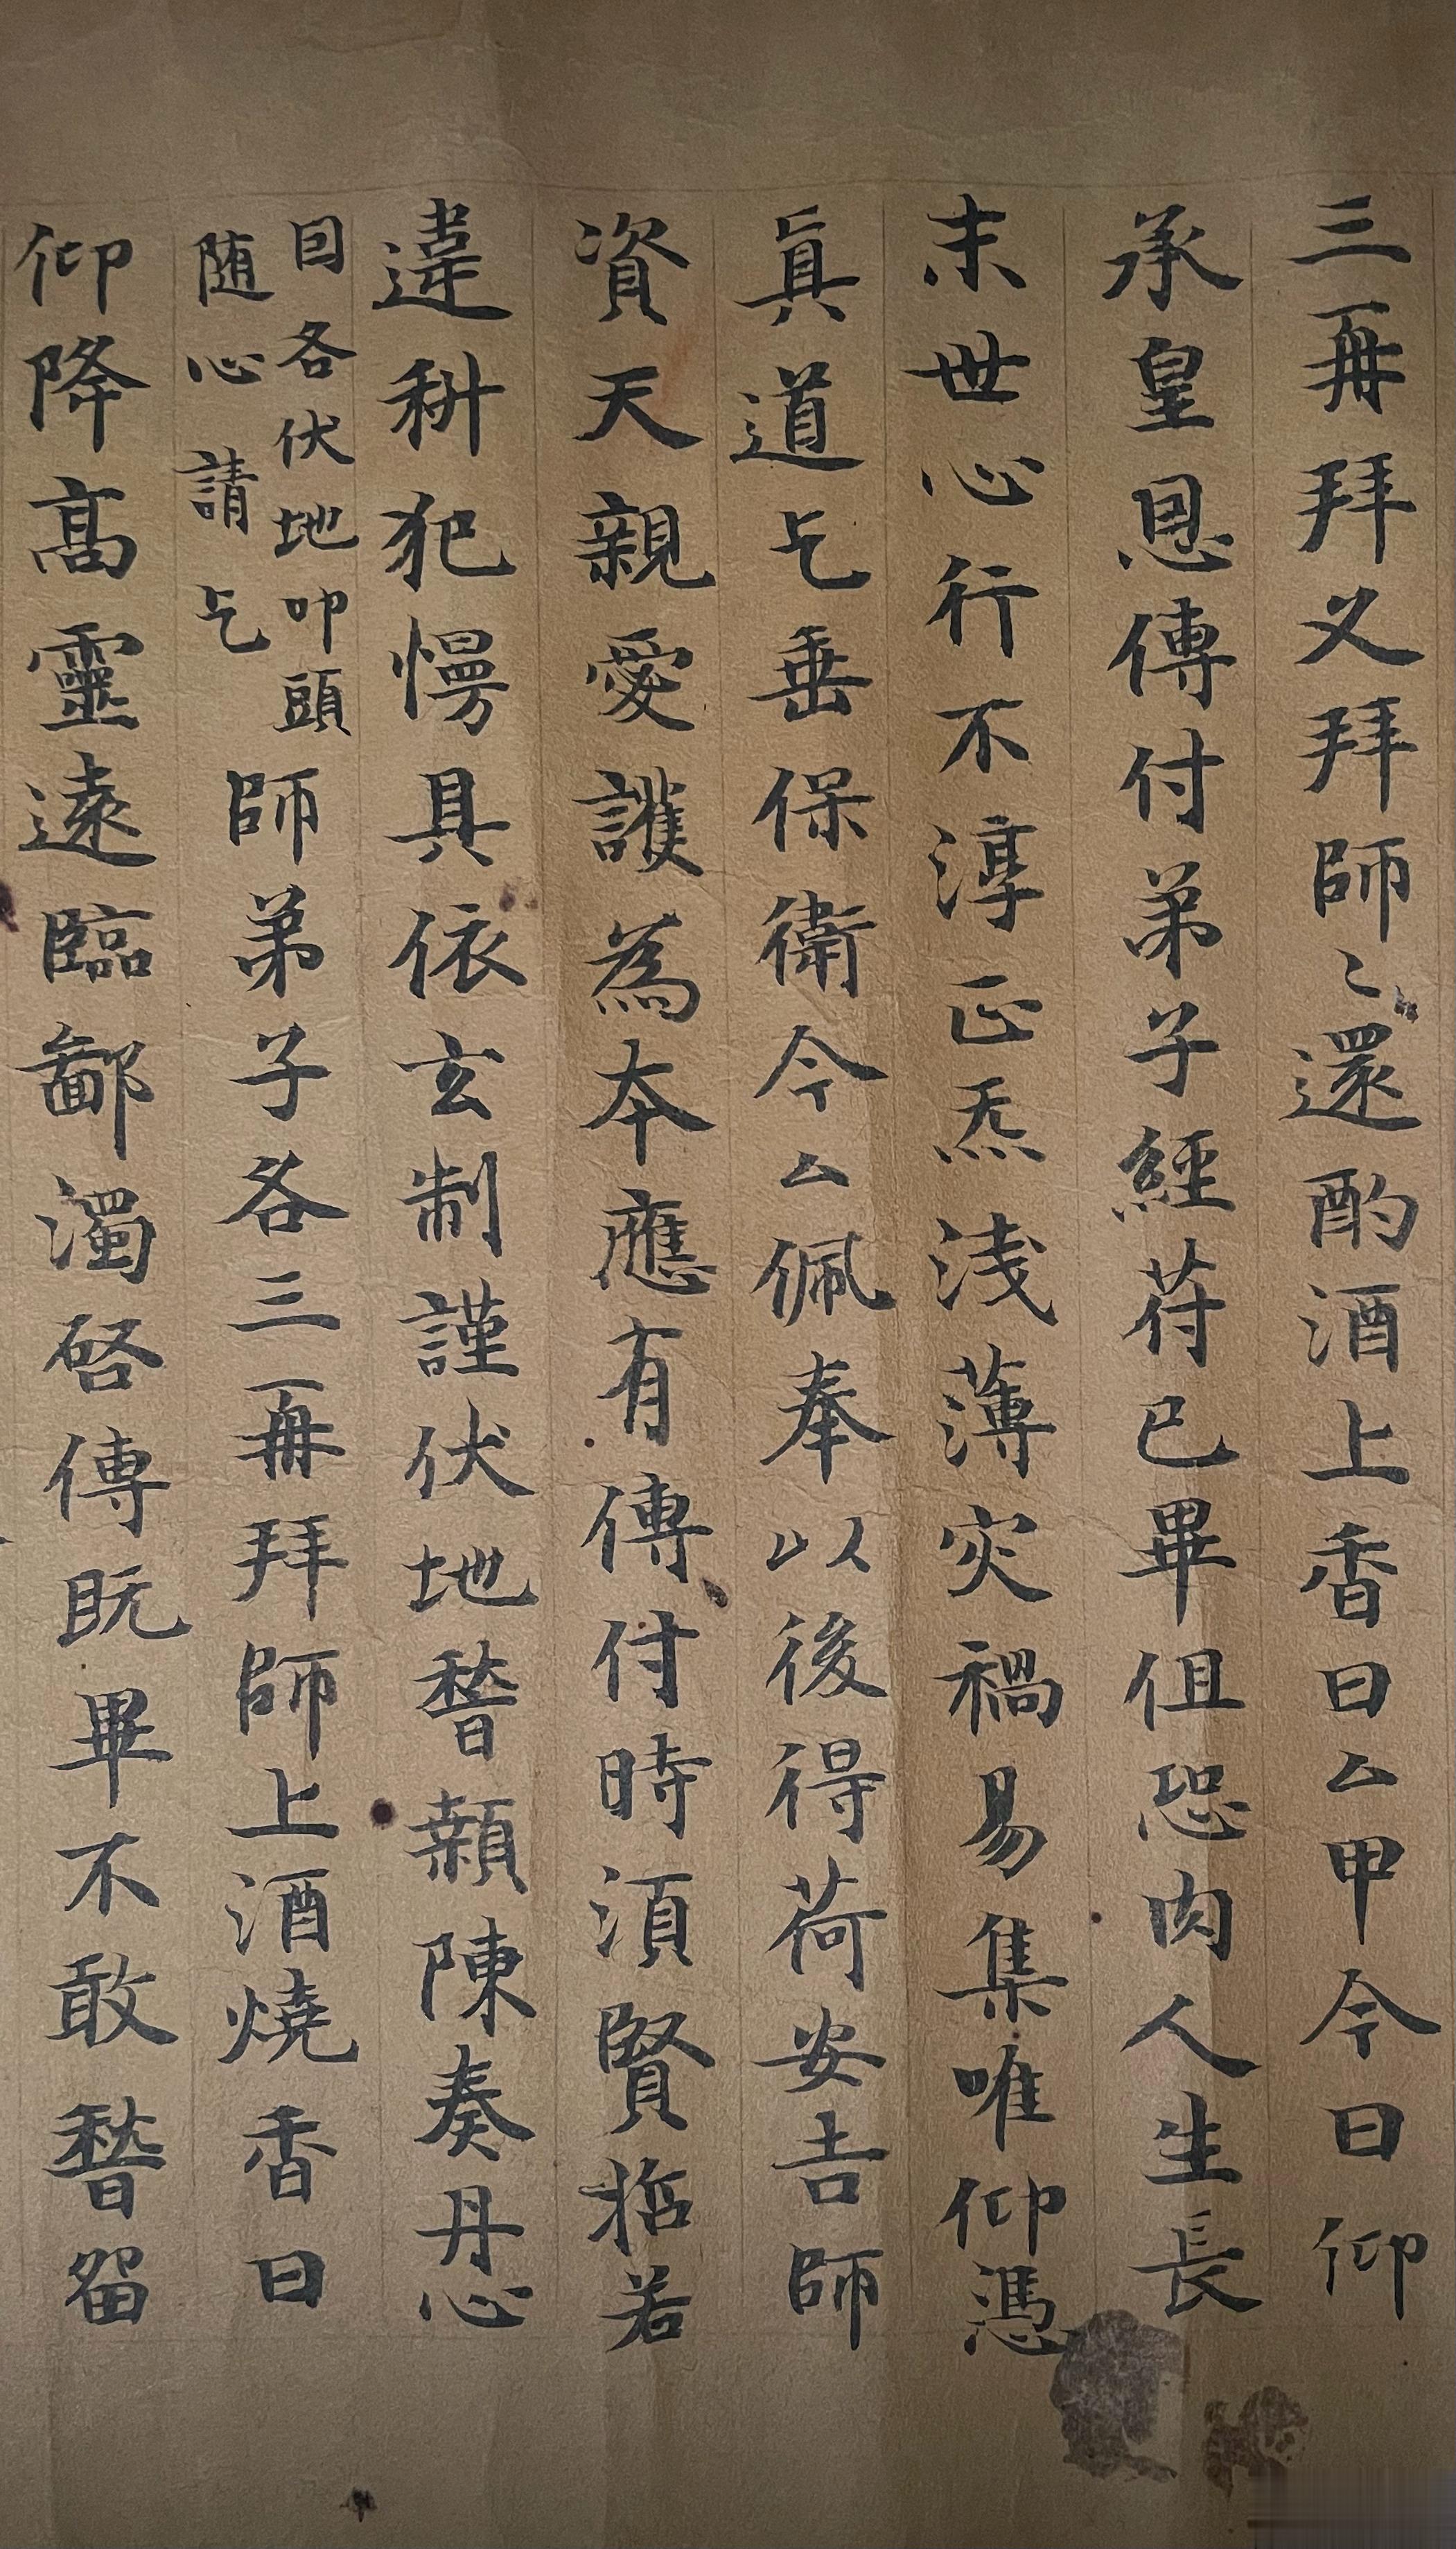 三再拜又拜師〻還酌酒上香曰厶甲今日仰
承皇恩傳付弟子經苻已畢伹恐肉人生長
末世心行不淳正炁淺薄灾禍易集唯仰憑
真道乞垂保衛今厶佩奉以後得荷安吉師
資天親愛護為本應有傳付時湏賢哲若
違科犯慢具依玄制謹伏地稽顙陳奏丹心
因各伏地叩頭
随心請乞
師弟子各三再拜師上酒燒香曰
仰降髙靈遠臨鄙濁啓傳既畢不敢稽留